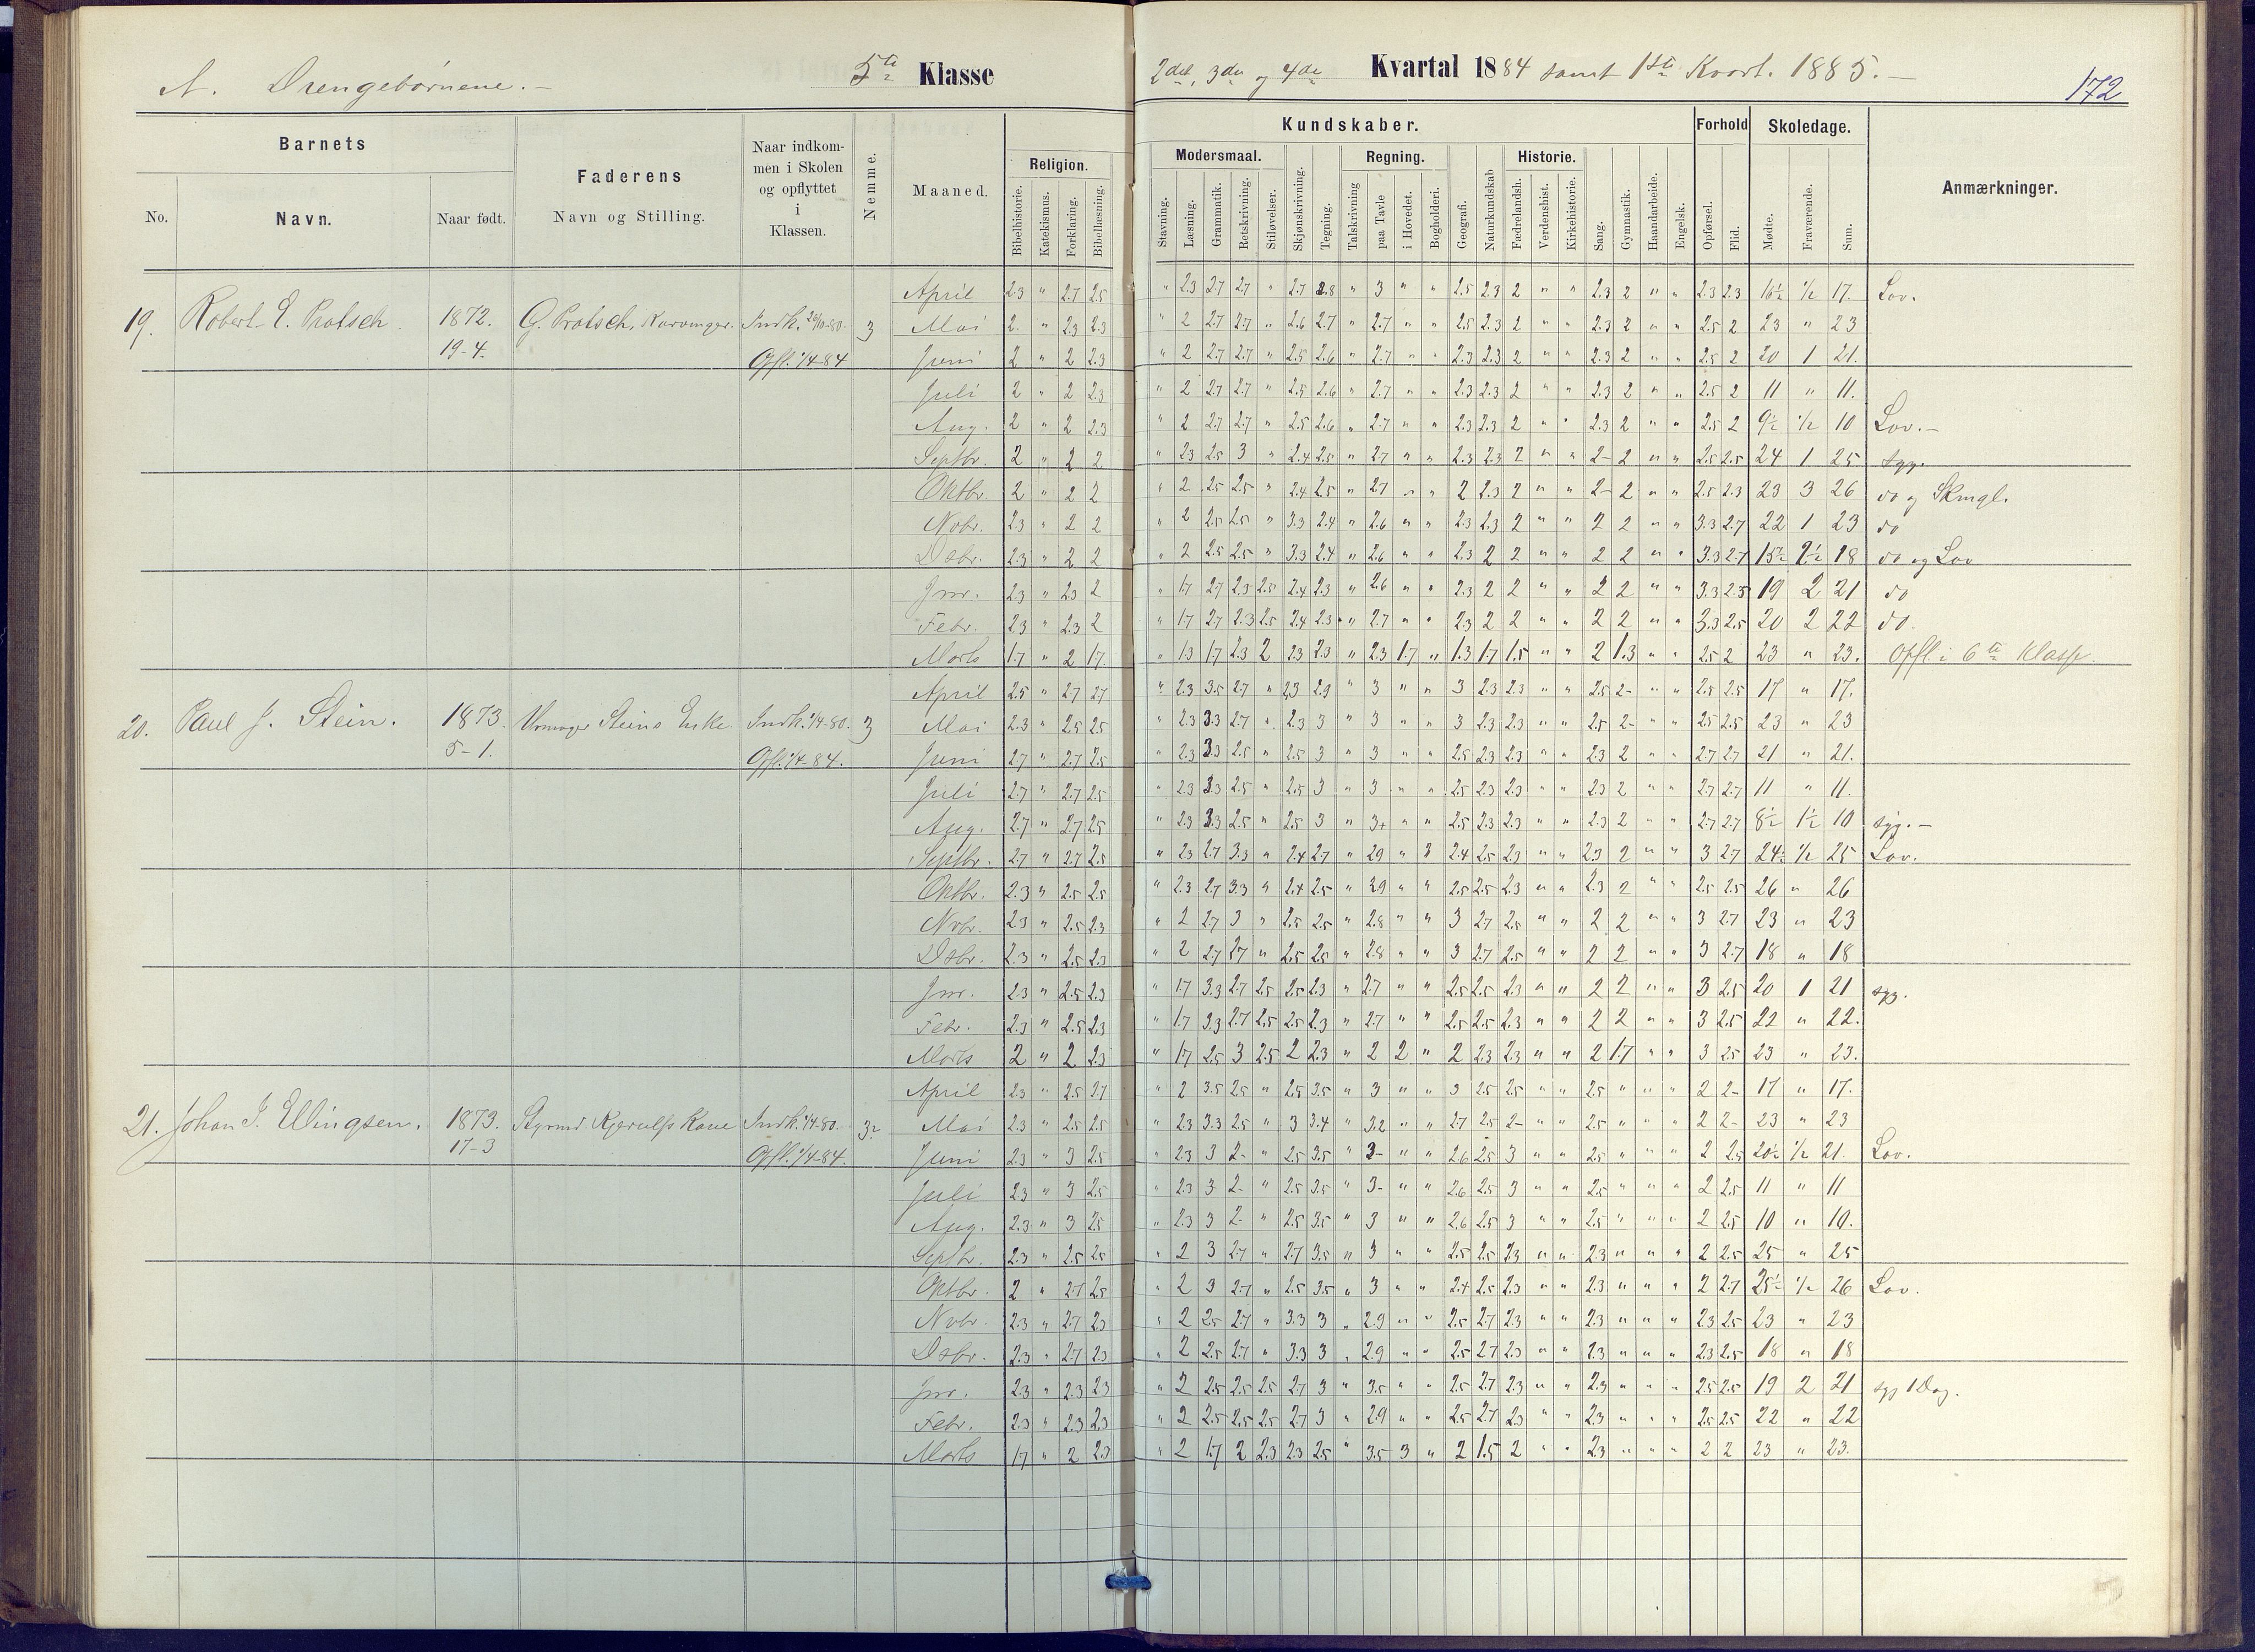 A. Drengebørnene. — 5te Klasse
2det, 3die og 4de Kvartal 1884 samt 1ste Kvart. 1885. —
172
Barnets
No.
Navn.
Naar født.
Faderens
Navn og Stilling.
Naar indkom-
men i Skolen
og opflyttet
i
Klassen.
Nemme.
Maaned.
Religion.
Bibelhistorie.
Katekismus.
Forklaring.
Bibellæsning.
Kundskaber.
Modersmaal.
Stavning.
Læsning.
Grammatik.
Retskrivning.
Stiløvelser.
Skjønskrivning.
Tegning.
Regning.
Talskrivning
paa Tavle
i Hovedet.
Bogholderi.
Geografi.
Naturkundskab
Historie.
Fædrelandsh.
Verdenshist.
Kirkehistorie.
Sang.
Gymnastik.
Haandarbeide.
Engelsk.
Forhold
Opførsel.
Flid.
Skoledage.
Mødte.
Fraværende.
Sum.
Anmærkninger.
19. Robert E. Protsch. 1872. G. Protsch, Indk. 3
19-4. Opfl. 1/4-84
April 2.3 " 2.7 2.5 " 2.3 2.7 2.7 " 2.7 2.8 " 3 " " 2.5 2.3 2 " " 2.3 2 " " 2.3 2.3 16½ ½ 17. Lov.
Mai 2. " 2.3 2.3 " 2 2.7 2.7 " 2.6 2.7 " 2.7 " " 2.5 2.3 2 " " 2.3 2 " " 2.5 2 23 " 23
Juni 2 " 2 2.3 " 2 2.7 2.7 " 2.5 2.6 " 2.7 " " 2.3 2.3 2 " " 2.3 2 " " 2.5 2 20 1 21.
Juli 2 " 2 2.3 " 2 2.7 2.7 " 2.5 2.6 " 2.7 " " 2.3 2.3 2 " " 2.3 2 " " 2.5 2 11 " 11.
Aug. 2 " 2 2.3 " 2 2.7 2.7 " 2.5 2.6 " 2.7 " " 2.3 2.3 2 " " 2.3 2 " " 2.5 2 9½ ½ 10 Lov. —
Septbr. 2 " 2 2 " 2.3 2.5 3 " 2.4 2.5 " 2.7 " " 2.3 2.3 2 " " 2- 2 " " 2.5 2.5 24 1 25 syg.
Oktbr. 2 " 2 2 " 2 2.5 2.5 " 2.4 2.5 " 2.7 " " 2 2.3 2 " " 2- 2 " " 2.5 2.3 23 3 26 do og Skmgl.
Nobr. 2.3 " 2 2 " 2 2.5 2.5 " 3.3 2.4 " 2.6 " " 2.3 2.3 2 " " 2 2 " " 3.3 2.7 22 1 23 do
Dsbr. 2.3 " 2 2 " 2 2.5 2.5 " 3.3 2.4 " 2.6 " " 2.3 2 2 " " 2 2 " " 3.3 2.7 15½ 2½ 18 do og Lov
Jnr. 2.3 " 2.3 2 " 1.7 2.7 2.3 2.5 2.4 2.3 " 2.6 " " 2.3 2 2 " " 2 2 " " 3.3 2.5 19 2 21 do
Febr. 2.3 " 2.3 2 " 1.7 2.7 2.3 2.5 2.4 2.3 " 2.7 " " 2.3 2 2 " " 2 2 " " 3.3 2.5 20 2 22 do.
Marts 1.7 " 2 1.7. " 1.3 1.7 2.3 2 2.3 2.3 " 2.3 1.7 " 1.3 1.7 1.5 " " 2 1.3 " " 2.5 2 23 " 23. Opfl. i 6te Klasse.
20. Paul J. Stein. 1873. Urmager Steins Enke Indk. 1/4-80. 3
5-1. Opfl. 1/4-84.
April 2.5 " 2.7 2.7 " 2.3 3.5 2.7 " 2.3 2.9 " 3 " " 3 2.3 2.3 " " 2.5 2- " " 2.5 2.5 17 " 17.
Mai 2.3 " 2.5 2.5 " 2.3 3.3 2.7 " 2.3 3 " 3 " " 3 2.3 2.3 " " 2.5 2- " " 2.5 2.5 23 " 23
Juni 2.7 " 2.7 2.5 " 2.3 3.3 2.5 " 2.5 3 " 3 " " 2.5 2.3 2.3 " " 2.3 2 " " 2.7 2.7 21 " 21.
Juli 2.7 " 2.7 2.5 " 2.3 3.3 2.5 " 2.5 3 " 3 " " 2.5 2.3 2.3 " " 2.3 2 " " 2.7 2.7 11 " 11.
Aug. 2.7 " 2.7 2.5 " 2.3 3.3 2.5 " 2.5 3 " 3+ " " 2.5 2.3 2.3 " " 2.3 2 " " 2.7 2.7 8½ 1½ 10 syg. —
Septbr. 2.7 " 2.7 2.5 " 2.3 2.7 3.3 " 2.4 2.7 " 2.9 " " 2.4 2.5 2.3 " " 2.3 2 " " 3 2.7 24½ ½ 25 Lov.
Oktbr. 2.3 " 2.5 2.5 " 2.3 2.7 3.3 " 2.4 2.5 " 2.9 " " 2.5 2.5 2.3 " " 2.3 2 " " 2.5 2.5 26 " 26
Nvbr. 2.3 " 2.5 2.3 " 2 2.7 3 " 2.5 2.5 " 2.8 " " 3 2.7 2.5 " " 2 2 " " 3 2.7 23 " 23
Dsbr. 2.3 " 2.5 2.3 " 2 2.7 2.7 " 2.5 2.5 " 2.8 " " 3 2.7 2.5 " " 2 2 " " 3 2.7 18 " 18
Jnr. 2.3 " 2.5 2.3 " 1.7 3.3 2.7 2.5 2.5 2.3 " 2.7 " " 2.5 2.5 2.3 " " 2 2 " " 3 2.5 20 1 21 syg.
Febr. 2.3 " 2.5 2.3 " 1.7 3.3 2.7 2.5 2.5 2.3 " 2.7 " " 2.5 2.5 2.3 " " 2 2 " " 3 2.5 22 " 22.
Marts 2 " 2 2.3 " 1.7 2.5 3 2.5 2 2.3 " 2 2 " 2 2.3 2.3 " " 2 1.7 " " 3 2.5 23 " 23.
21. Johan J. Ellingsen. 1873. Styrmd Kjerulfs Kone Indk. 1/4-80. 3½
17-3 Opfl. 1/4-84.
April 2.3 " 2.5 2.7 " 2 3.5 2.5 " 2.5 3.5 " 3 " " 3 2.5 2.5 " " 2.5 " " " 2 2- 17 " 17.
Mai 2.3 " 2.5 2.5 " 2.3 3.3 2.5 " 3 3.4 " 3.2 " " 2.7 2.5 2- " " 2.5 " " " 2 2- 23 " 23
Juni 2.3 " 3 2.5 " 2.3 3 2- " 2.5 3.5 " 3- " " 2.6 2.5 3 " " 2.5 " " " 2 2.5 20½ ½ 21. Lov.
Juli 2.3 " 3 2.5 " 2.3 3 2- " 2.5 3.5 " 3- " " 2.6 2.5 3 " " 2.5 " " " 2 2.5 11 " 11
Aug. 2.3 " 3 2.5 " 2.3 3 2- " 2.5 3.5 " 3 " " 2.6 2.5 3 " " 2.5 " " " 2 2.5 10 " 10.
Septbr. 2.3 " 2.5 2.5 " 2 3 2.7 " 2.7 3.5 " 3 " " 2.5 2.5 2.3 " " 2.3 " " " 2 2.5 25 " 25
Oktbr. 2 " 2.7 2.5 " 2 3 2.7 " 2.5 3.5 " 3 " " 2.4 2.5 2.3 " " 2.3 " " " 2 2.7 25½ ½ 26 Lov.
Nvbr. 2.3 " 2.7 2.3 " 2 2.5 2.7 " 3.3 3 " 2.9 " " 2.5 2.7 2.3 " " 2.3 " " " 2.3 2.5 23 " 23
Dsbr. 2.3 " 2.7 2.3 " 2 2.5 2.7 " 3.3 3 " 2.9 " " 2.5 2.7 2.3 " " 2.3 " " " 2.3 2.5 18 " 18
Jnr. 2.3 " 2.3 2.3 " 2 2.5 2.5 2.5 2.7 3 " 3.5 " " 2.5 2.7 2.3 " " 2.3 " " " 2.5 2.5 19 2 21 syg 1 Dag.
Febr. 2.3 " 2.3 2.3 " 2 2.5 2.5 2.5 2.7 3 " 2.9 " " 2.5 2.7 2.3 " " 2.3 " " " 2.5 2.5 22 " 22
Marts 1.7 " 2 2.3 " 2 1.7 2 2.3 2.3 2.5 " 3.5 3 " 2 1.5 2 " " 2.3 " " " 2 2 23 " 23.